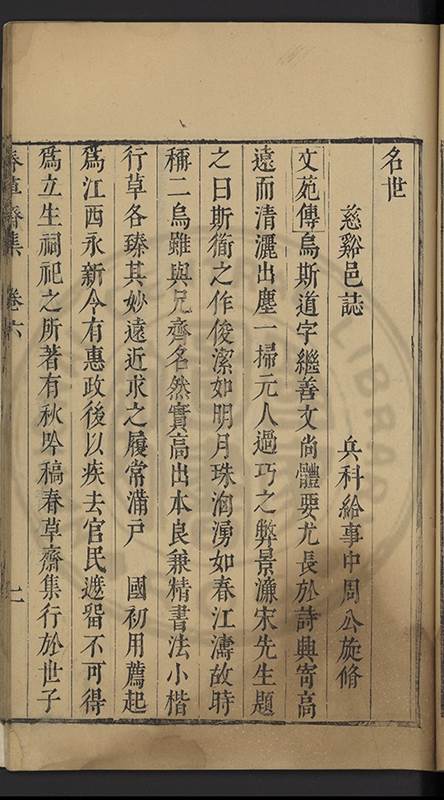 名世
慈谿邑誌　　兵科給事中周公旋脩
文苑傳烏斯道字繼善文尚體要尤長於詩興寄高
遠而清灑出塵一掃元人過巧之弊景濂宋先生題
之曰斯衜之作俊潔如明月珠洶湧如春江濤故時
稱二烏雖與兄齊名然實高出本良兼精書法小楷
行草各臻其妙遠近求之履常滿戶　國初用薦起
爲江西永新令有惠政後以疾去官民遮留不可得
爲立生祠祀之所著有秋吟稿春草齋集行於世子
春草齋集　卷六　二